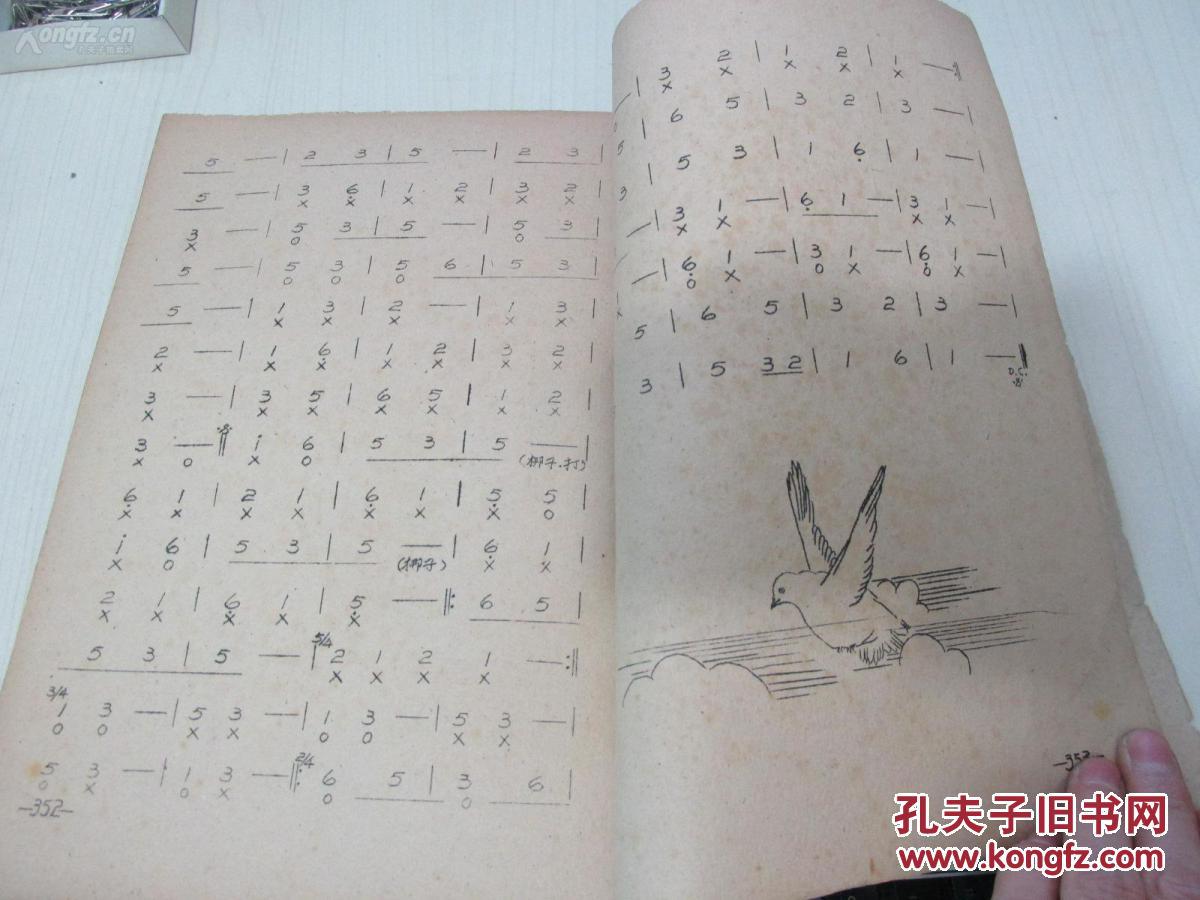 Kongfz.cn
孔夫子旧书网
5 — | 2 3 | 5 — | 2 3 |
5 — | 3 6̣ | 1 2 | 3 2 |
x x x x x x
3 — | 5 3 | 5 — | 5 3 |
x o o
5 — | 5 3 | 5 6 | 5 3 |
o o o
5 — | 1 3 | 2 — | 1 3 |
x x x x x
2 — | 1 6̣ | 1 2 | 3 2 |
x x x x x x x
3 — | 3 5 | 6 5 | 1 2 |
x x x x x x x
3 — 𝄋 ‖ i 6 | 5 3 | 5 — |
x o x o (梆子.打)
6̣ 1 | 2 1 | 6̣ 1 | 5̣ 5
x x x x x x x o
i 6 | 5 3 | 5 — | 6̣ 1 |
x o (梆子) x x
2 1 | 6̣ 1 | 5̣ — ‖: 6 5 |
x x x x x
5 3 | 5 — | 5/4 2 1 2 1 — :‖
x x x x
3/4 1 3 — | 5 3 — | 1 3 — | 5 3 — |
o o x x o o x x
5 3 — | 1 3 — ‖: 2/4 6 5 | 3 6 |
o x o x o o
—352—
| 3 2 | 1 2 | 1 — ‖
x x x x x
| 6 5 | 3 2 | 3 — |
5 | 5 3 | 1 6̣ | 1 — |
3 — | 3 1 — | 6̣ 1 — | 3 1 — |
x x x x
— | 6̣ 1 — | 3 1 — | 6̣ 1 — |
o x o x o x
5 | 6 5 | 3 2 | 3 — |
3 | 5 3 2 | 1 6 | 1 — ‖
D.C.
—353—
孔夫子旧书网
www.kongfz.com